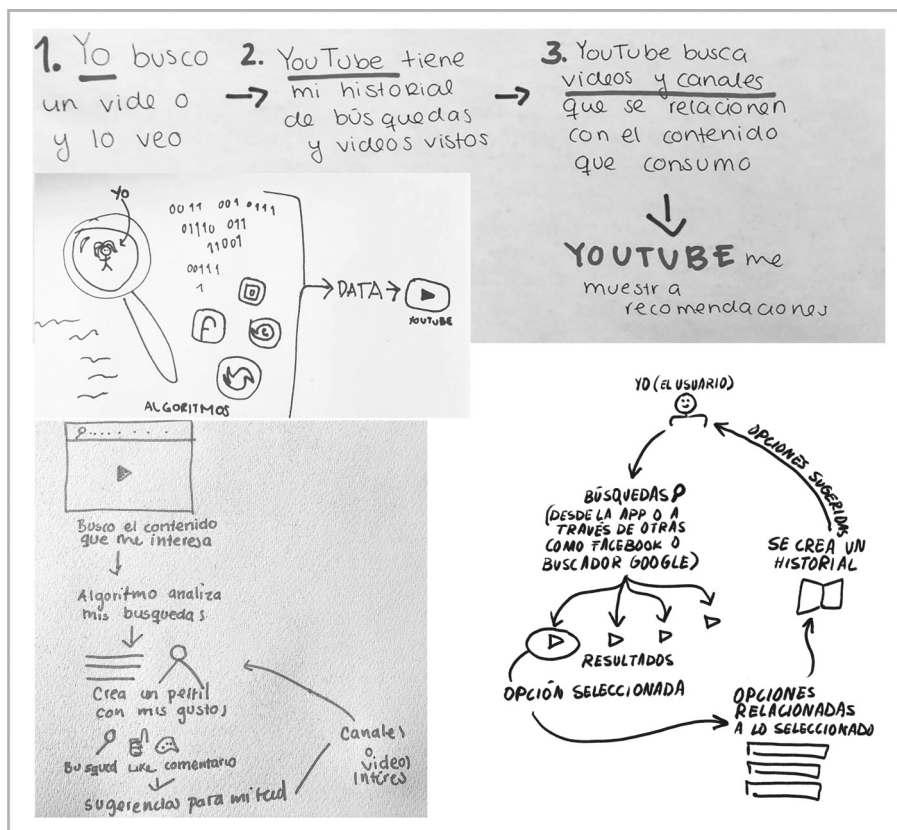 1. Yo busco
un video
y lo veo
2. YouTube tiene
mi historial
de búsquedas
y videos vistos
3. YouTube busca
videos y canales
que se relacionen
con el contenido
que consumo
YOUTUBE me
muestra
recomendaciones
YO
0011 001 0111
01110 011
11001
00111
1
DATA
YOUTUBE
ALGORITMOS
Busco el contenido
que me interesa
Algoritmo analiza
mis busquedas
Crea un perfil
con mis gustos
Busqued LIKE comentario
sugerencias para mi feed
Canales
o
videos
Intéres
YO (EL USUARIO)
BÚSQUEDAS
(DESDE LA APP O A
TRAVÉS DE OTRAS
COMO FACEBOOK O
BUSCADOR GOOGLE)
RESULTADOS
OPCIÓN SELECCIONADA
OPCIONES
RELACIONADAS
A LO SELECCIONADO
SE CREA UN
HISTORIAL
OPCIONES SUGERIDAS